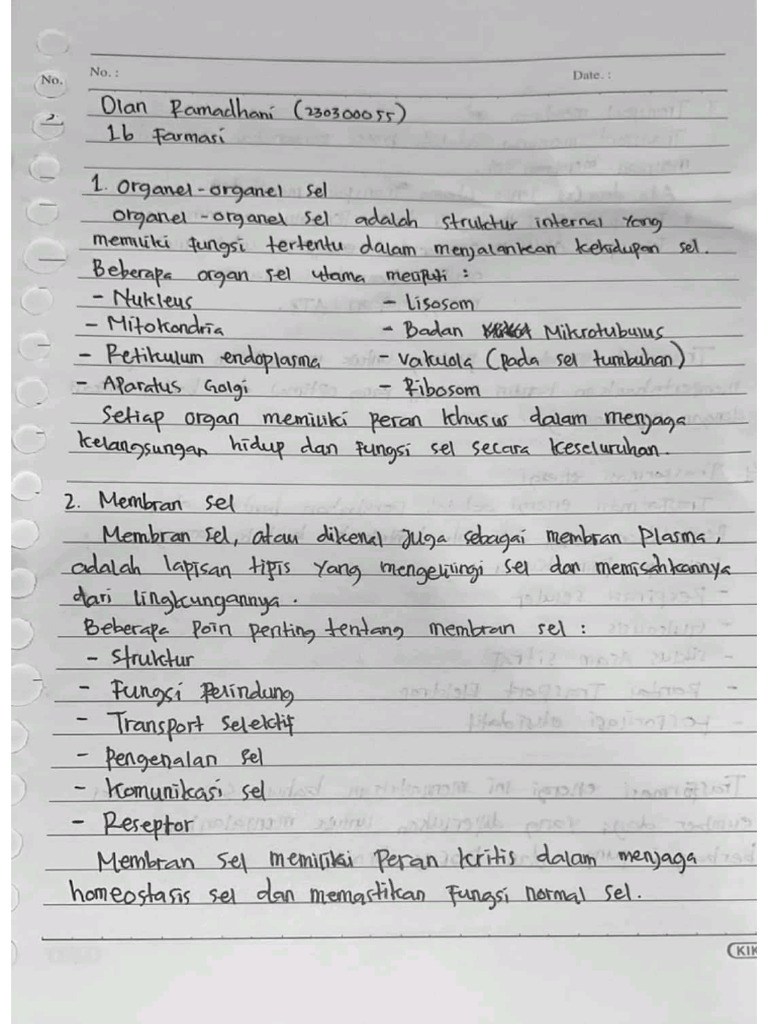 No.
No. :
Date. :
2.
Olan Ramadhani (230300055)
1b Farmasi
1. Organel-organel sel
organel-organel sel adalah struktur internal yang
memiliki fungsi tertentu dalam menjalankan kehidupan sel.
Beberapa organ sel utama meliputi :
- Nukleus - Lisosom
- Mitokondria - Badan Mikrotubulus
- Retikulum endoplasma - vakuola (pada sel tumbuhan)
- Aparatus Golgi - Ribosom
Setiap organ memiliki peran khusus dalam menjaga
kelangsungan hidup dan fungsi sel secara keseluruhan.
2. Membran sel
Membran sel, atau dikenal juga sebagai membran plasma,
adalah lapisan tipis yang mengelilingi sel dan memisahkannya
dari lingkungannya.
Beberapa poin penting tentang membran sel :
- Struktur
- Fungsi Pelindung
- Transport selektif
- Pengenalan sel
- Komunikasi sel
- Reseptor
Membran sel memiliki peran kritis dalam menjaga
homeostasis sel dan memastikan fungsi normal sel.